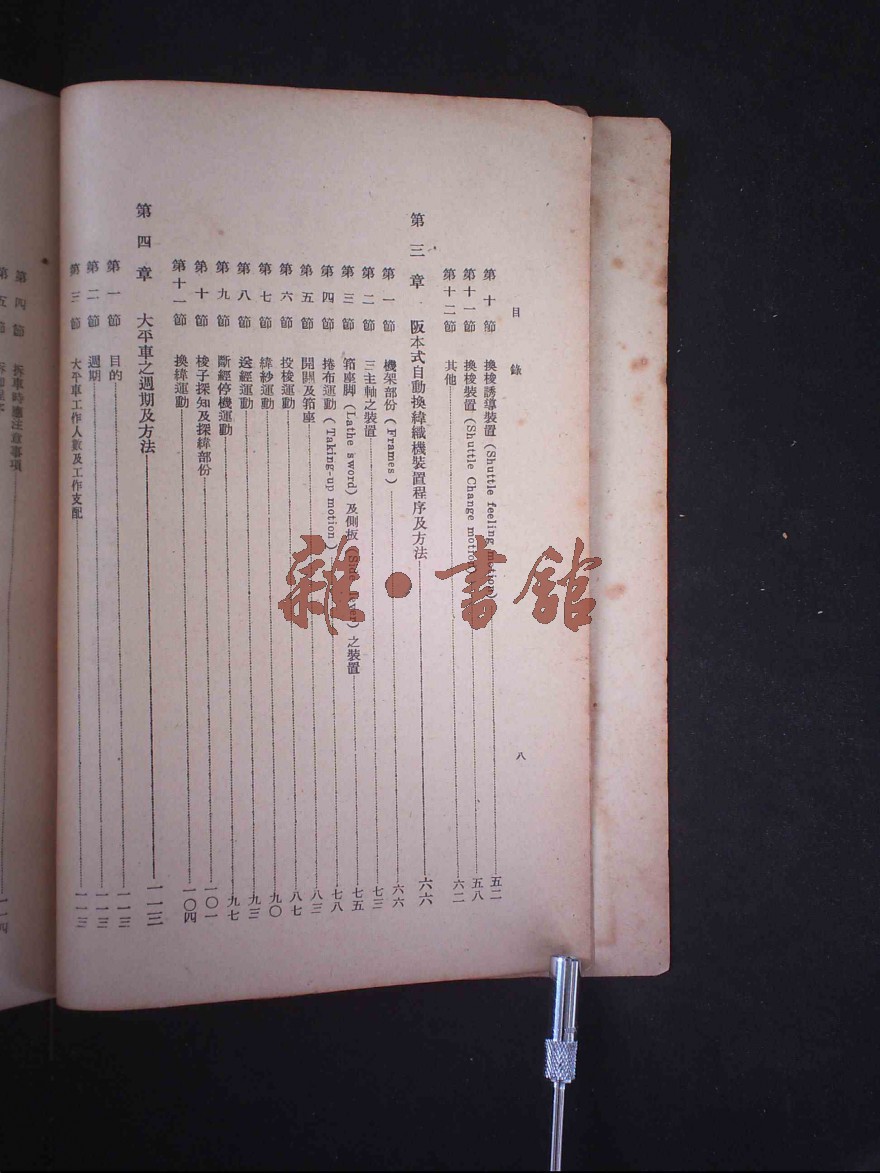 目錄
八
第十節 換梭誘導裝置(Shuttle feeling motion)五二
第十一節 換梭裝置(Shuttle Change motion)五八
第十二節 其他六二
第三章 阪本式自動換緯織機裝置程序及方法六六
第一節 機架部份(Frames)六六
第二節 三主軸之裝置七三
第三節 筘座脚(Lathe sword)及側板(Side lever)之裝置七五
第四節 捲布運動(Taking-up motion)七八
第五節 開關及筘座八三
第六節 投梭運動八七
第七節 緯紗運動九〇
第八節 送經運動九三
第九節 斷經停機運動九七
第十節 梭子探知及探緯部份一〇一
第十一節 換緯運動一〇四
第四章 大平車之週期及方法一一三
第一節 目的一一三
第二節 週期一一三
第三節 大平車工作人數及工作支配一一三
第四節 拆車時應注意事項一一四
第五節
雜·書館